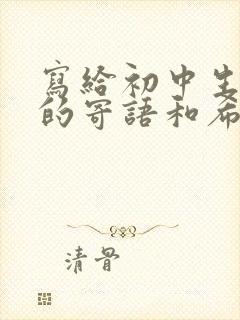 寫給初中生
的寄語和希
清骨